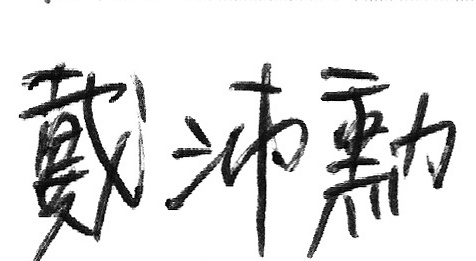 戴沛勳